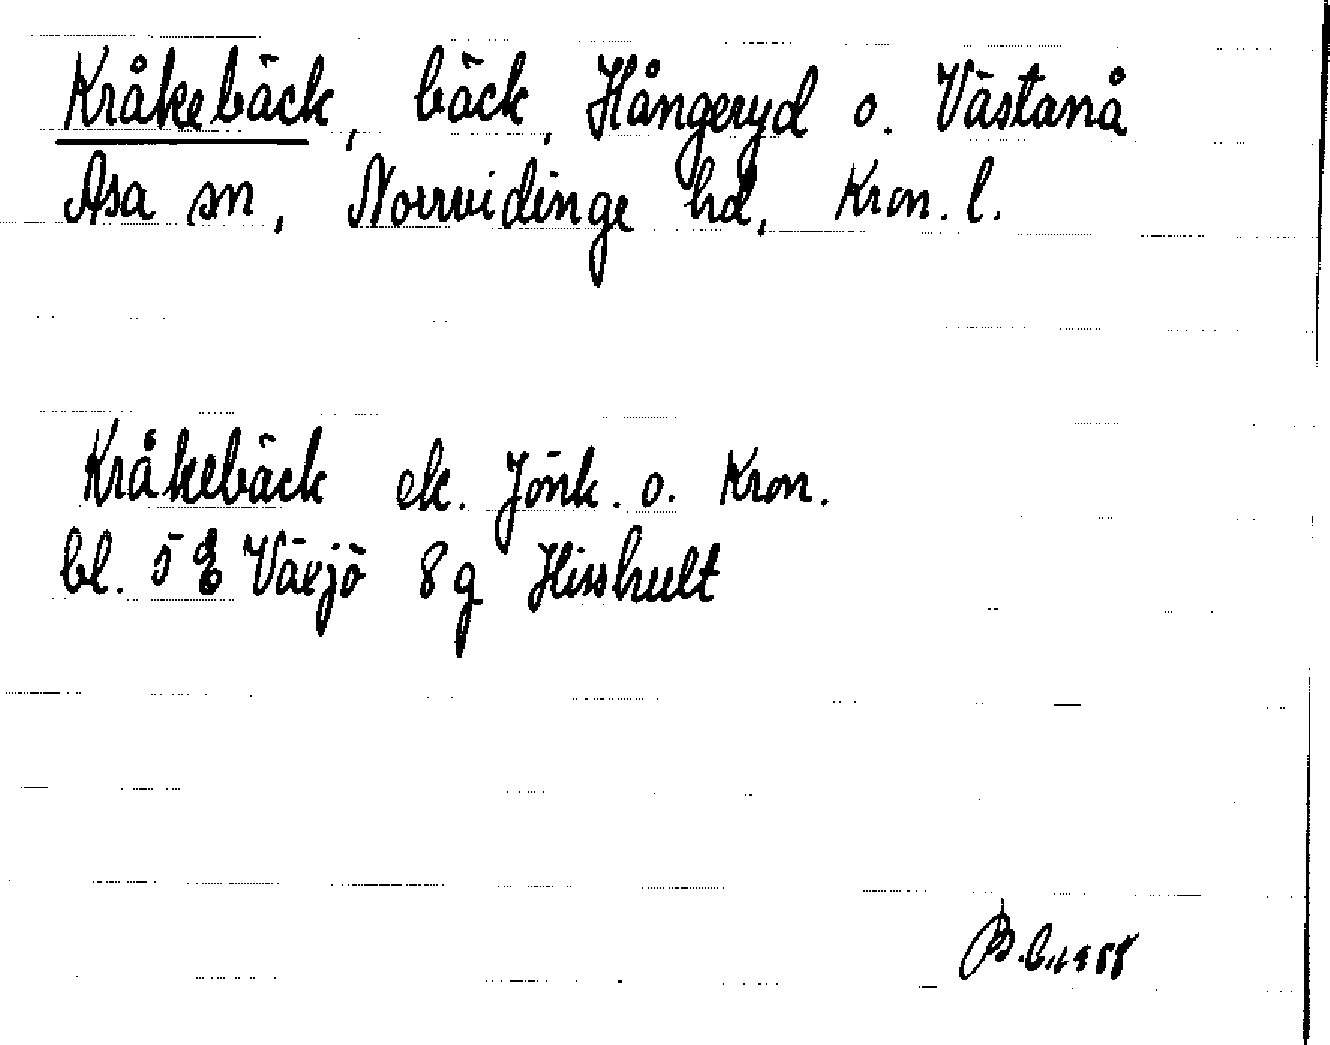 Kråkebäck, bäck, Hångeryd o. Västanå
Asa sn, Norrvidinge hd, Kron. l.
Kråkebäck ek. Jönk. o. Kron.
bl. 5 E Växjö 8 g Hisshult